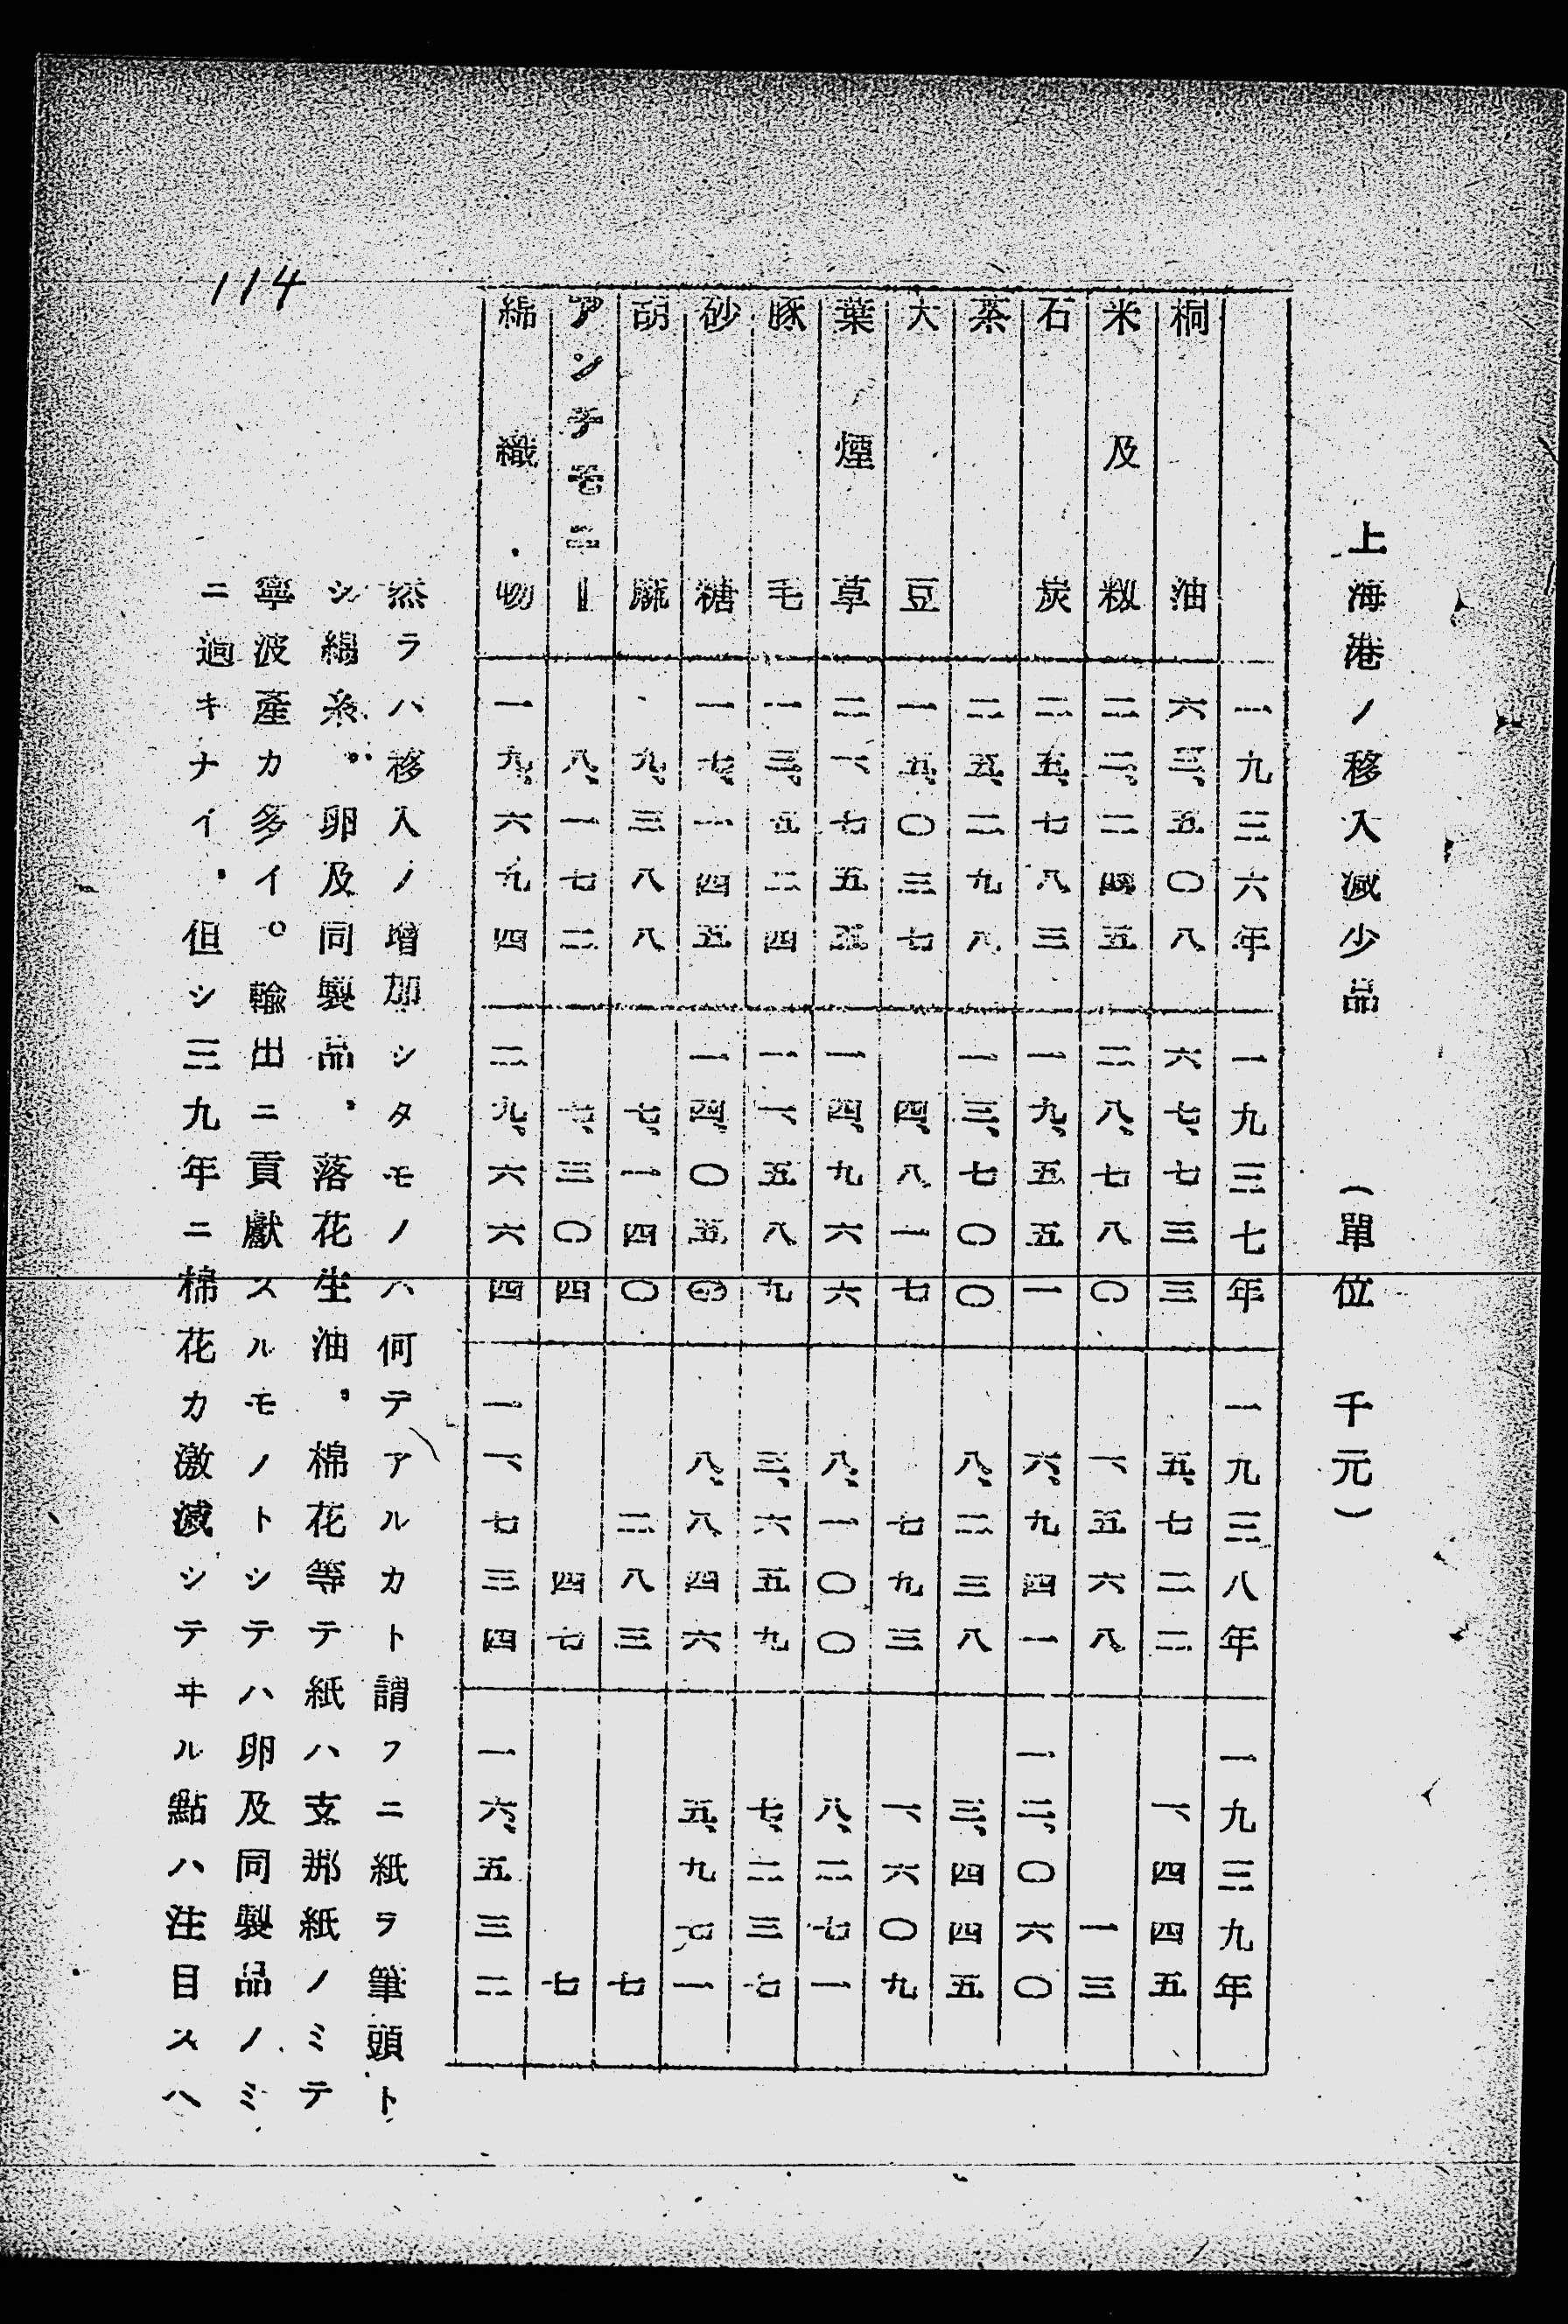 上海港ノ移入減少品 (單位 千元)
一九三六年 一九三七年 一九三八年 一九三九年
桐油 六三、五〇八 六七、七三三 五、七二二 一、四四五
米及籾 二二、二四五 二八、七八〇 一、五六八 一三
石炭 二五、七八三 一九、五五一 六、九四一 一二、〇六〇
茶 二五、二九八 一三、七〇〇 八、二三八 三、四四五
大豆 一五、〇三七 四、八一七 七九三 一、六〇九
葉煙草 二一、七五五 一四、九六六 八、一〇〇 八、二七一
豚毛 一三、五二四 一一、五八九 三、六五九 七、二三七
砂糖 一七、一四五 八、八四六 五、九七一
胡麻 九、三八八 七、一四〇 二八三 七
アンチモニー 八、一七二 七、三〇四 四七 七
綿織物 一九、六九四 二九、六六四 一一、七三四 一六、五三二
然ラハ移入ノ增加シタモノハ何テアルカト謂フニ紙ヲ筆頭ト
シ綿糸、卵及同製品、落花生油、棉花等テ紙ハ支那紙ノミテ
寧波產カ多イ。輸出ニ貢獻スルモノトシテハ卵及同製品ノミ
ニ過キナイ、但シ三九年ニ棉花カ激減シテヰル點ハ注目スヘ
114